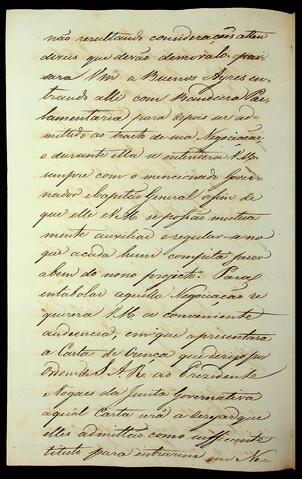 não rezultando considerações atten
diveis que devão demoralo, pas
sara Vm a Buenos Ayres en
trando alli com Bandeira Par
lamentaria para depois ser ad
mittido ao tracto de sua Negociação
e durante ella se entenderá V.M.
sempre com o mencionado Gover
nador e Capitão General afim de
que elle e V.M. se possão mutua
mente auxiliar e regular-se no
que acada hum competir fazer
abem do nosso projecto. Para
intabolar aquella Negociação re
quererá V.M. a conveniente
audiencia, em que apresentara
a Carta de Crença que dirijo por
Ordem de S. A. R. ao Prezidente
e Vogaes da Junta Governativa
a qual Carta será a dezejar que
elles admittão como sufficiente
titulo para intrarem em Ne